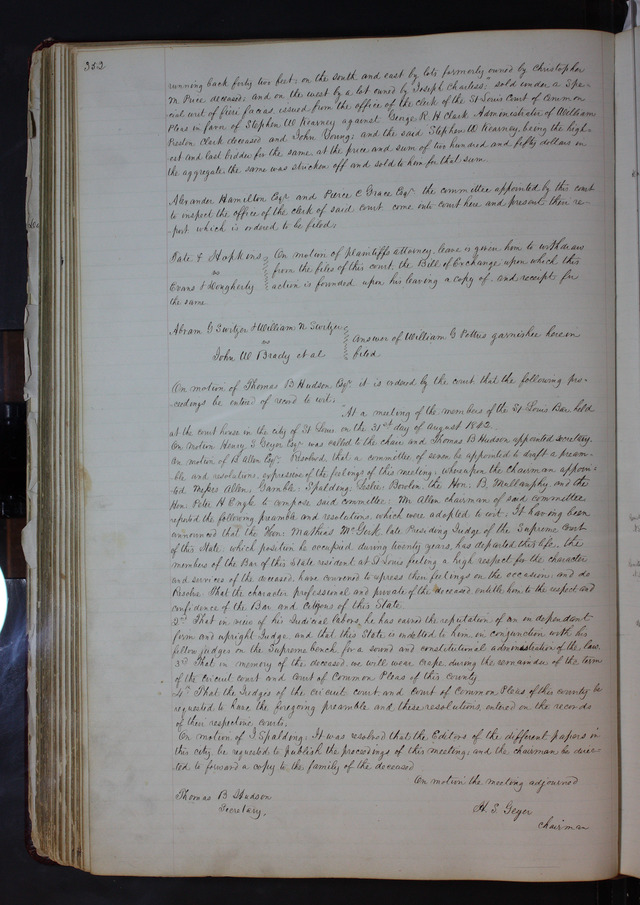 352.
running back forty two feet; on the south and east by lots formerly owned by Christopher
M. Price deceased; and on the west by a lot owned by "Joseph Charless;" sold under a Spe-
cial writ of fieri facias, issued from the office of the clerk of the St Louis Court of Common
Pleas in favor of Stephen W Kearney against George R H Clark Administrator of William
Preston Clark deceased and John Young; and the said Stephen W Kearney, being the high-
est and last bidder for the same at the price and sum of two hundred and fifty dollars in
the aggregate the same was stricken off and sold to him for that sum.
Alexander Hamilton Esqr and Pierce C Grace Esqr the committee appointed by this court
to inspect the office of the clerk of said court come into court here and present their re-
port which is ordered to be filed;
Tate & Hopkins On motion of plaintiffs attorney leave is given him to withdraw
vs from the files of this court, the Bill of Exchange upon which this
Evans & Dougherty action is founded upon his leaving a copy of and receipt for
the same
Abram G Switzer & William N Switzer
vs Answer of William G Pettus garnishee herein
John W Brady et al filed
On motion of Thomas B Hudson Esqr it is ordered by the court that the following pro-
ceedings be entered of record to wit:
"At a meeting of the members of the St Louis Bar held
at the court house in the city of St Louis on the 31st day of August 1842.
On motion Henry S Geyer Esqr was called to the chair and Thomas B Hudson appointed secretary.
On motion of B Allen Esqr: Resolved, that a committee of seven be appointed to draft a pream-
ble and resolutions, expressive of the feelings of this meeting, whereupon the Chairman appoin-
ted Messrs Allen, Gamble, Spalding, Leslie, Bowlin, the Hon. B. Mullanphy and the
Hon. Peter H Engle to compose said committee; Mr Allen chairman of said committee
reported the following preamble and resolutions, which were adopted to wit: It having been
announced that the Hon: Mathias McGirk, late Presiding Judge of the Supreme Court
of this State, which position he occupied during twenty years, has departed this life, the
members of the Bar of this State resident at St Louis feeling a high respect for the character
and services of the deceased, have convened to express their feelings on the occasion; and do
Resolve That the character professional and private of the deceased entitle him to the respect and
confidence of the Bar and Citizens of this State
2nd That in view of his Judicial labors, he has earned the reputation of an independent
firm and upright Judge, and that this State is indebted to him in conjunction with his
fellow judges on the Supreme bench for a sound and constitutional administration of the law.
3rd That in memory of the deceased we will wear crape during the remainder of the term
of the circuit court and court of Common Pleas of this county.
4th That the Judges of the circuit court and Court of Common Pleas of this county be
requested to have the foregoing preamble and these resolutions entered on the records
of their respective courts.
On motion of J Spalding: It was resolved that the Editors of the different papers in
this city be requested to publish the proceedings of this meeting; and the chairman be direc-
ted to forward a copy to the family of the deceased
On motion the meeting adjourned
Thomas B Hudson
Secretary.
H. S. Geyer
Chairman